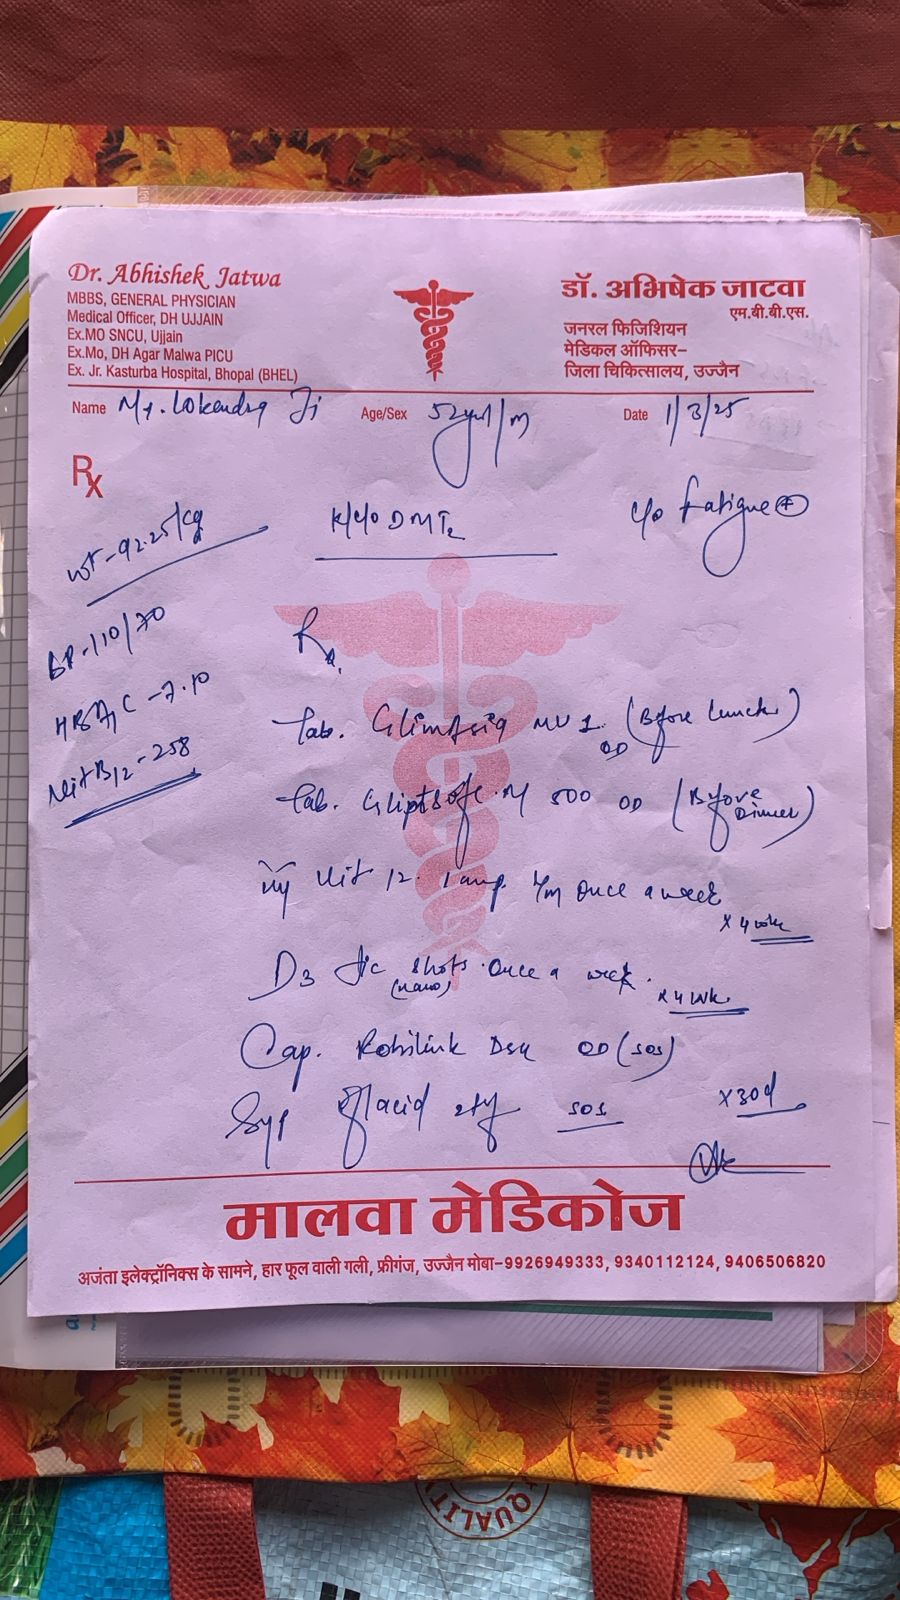 Dr. Abhishek Jatwa
MBBS, GENERAL PHYSICIAN
Medical Officer, DH UJJAIN
Ex.MO SNCU, Ujjain
Ex.Mo, DH Agar Malwa PICU
Ex. Jr. Kasturba Hospital, Bhopal (BHEL)
डॉ. अभिषेक जाटवा
एम.बी.बी.एस.
जनरल फिजिशियन
मेडिकल ऑफिसर–
जिला चिकित्सालय, उज्जैन
Name Mr. Lokendra Ji Age/Sex 52 /M Date 1/3/25
Rx
Wt - 92.25 kg
K/c/o DMT2
c/o Fatigue +
BP - 110/70
HBA1C - 7.10
Vit B12 - 258
Rx
Tab. MV 1 OD (Before Lunch)
Tab. M 500 OD (Before Dinner)
Inj Vit 12 1 amp. I/M Once a week
x 4 wk
D3 shots once a week
(nano) x 4 wk
Cap. DSR OD (SOS)
Syp SOS
x 30d
मालवा मेडिकोज
अजंता इलेक्ट्रॉनिक्स के सामने, हार फूल वाली गली, फ्रीगंज, उज्जैन मोबा-9926949333, 9340112124, 9406506820
QUALITY